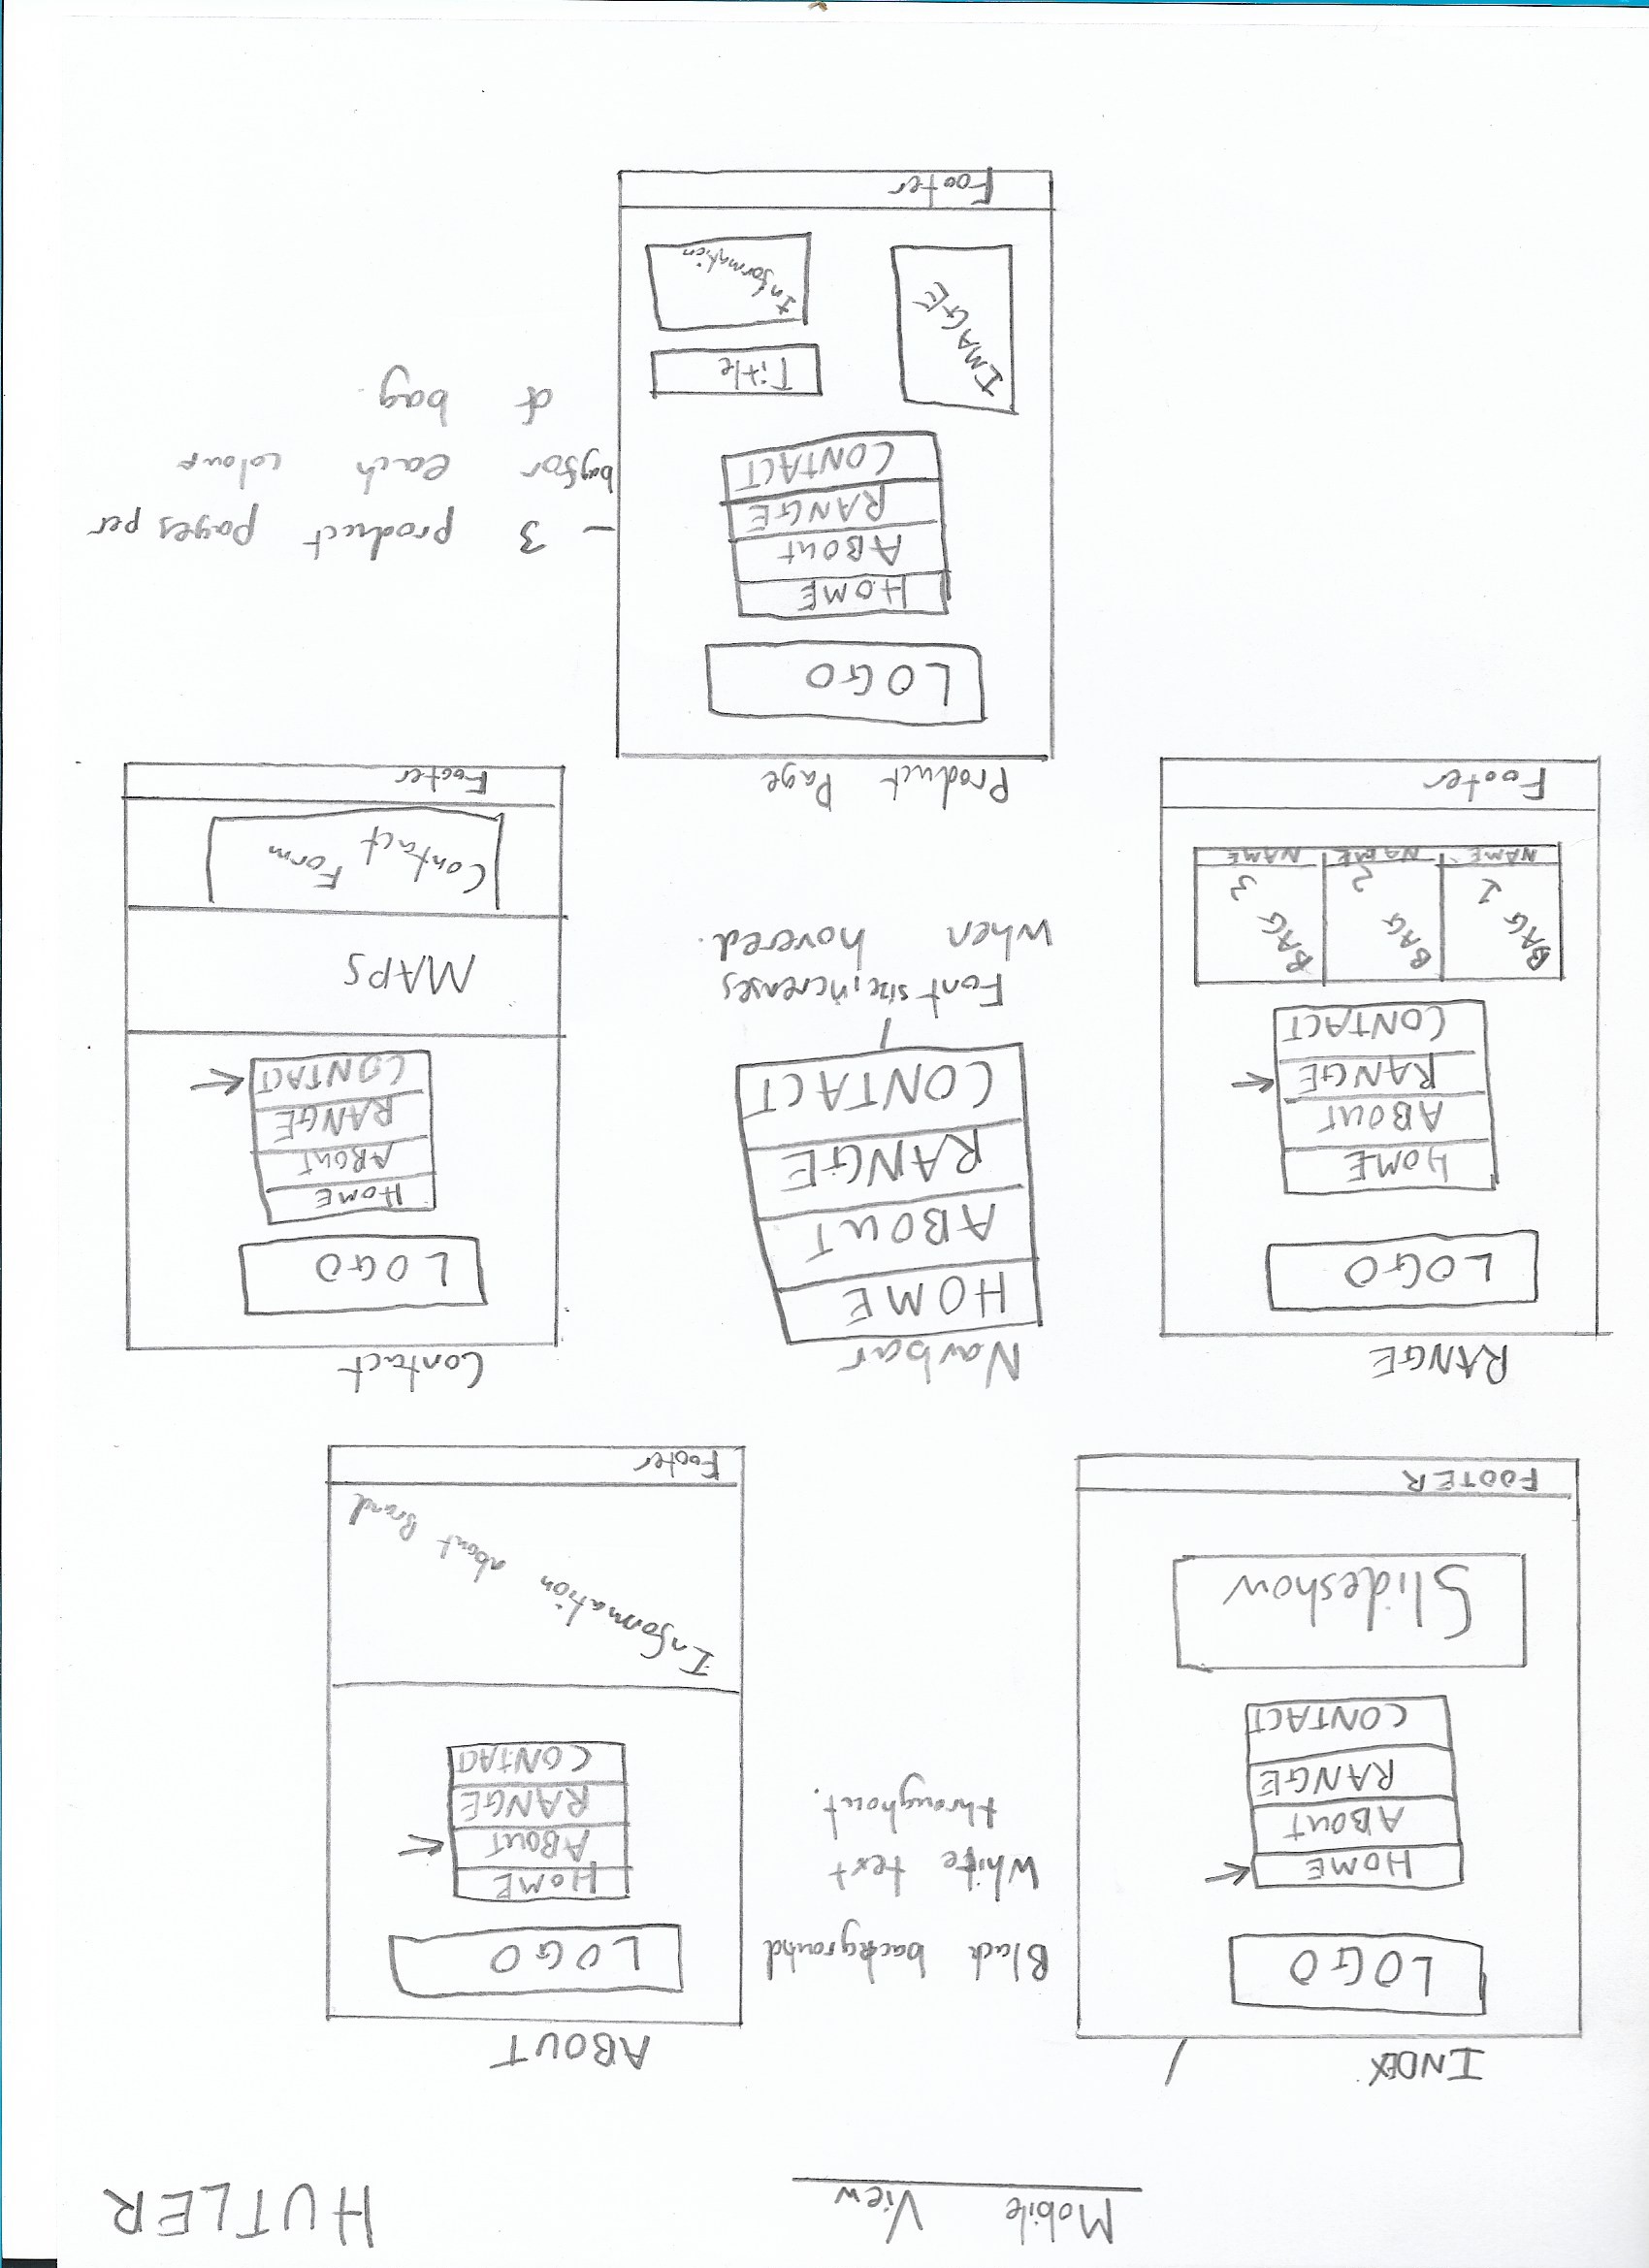 Mobile View
HUTLER
INDEX
LOGO
HOME
ABOUT
RANGE
CONTACT
Slideshow
FOOTER
Black background
White text
throughout.
ABOUT
LOGO
HOME
ABOUT
RANGE
CONTACT
Information about Brand
Footer
RANGE
LOGO
HOME
ABOUT
RANGE
CONTACT
BAG 1
BAG 2
BAG 3
NAME NAME NAME
Footer
Navbar
HOME
ABOUT
RANGE
CONTACT
Font size increases
when hovered.
Contact
LOGO
HOME
ABOUT
RANGE
CONTACT
MAPS
Contact Form
Footer
Product Page
LOGO
HOME
ABOUT
RANGE
CONTACT
IMAGE
Title
Information
Footer
- 3 product pages per
bag for each colour
of bag.